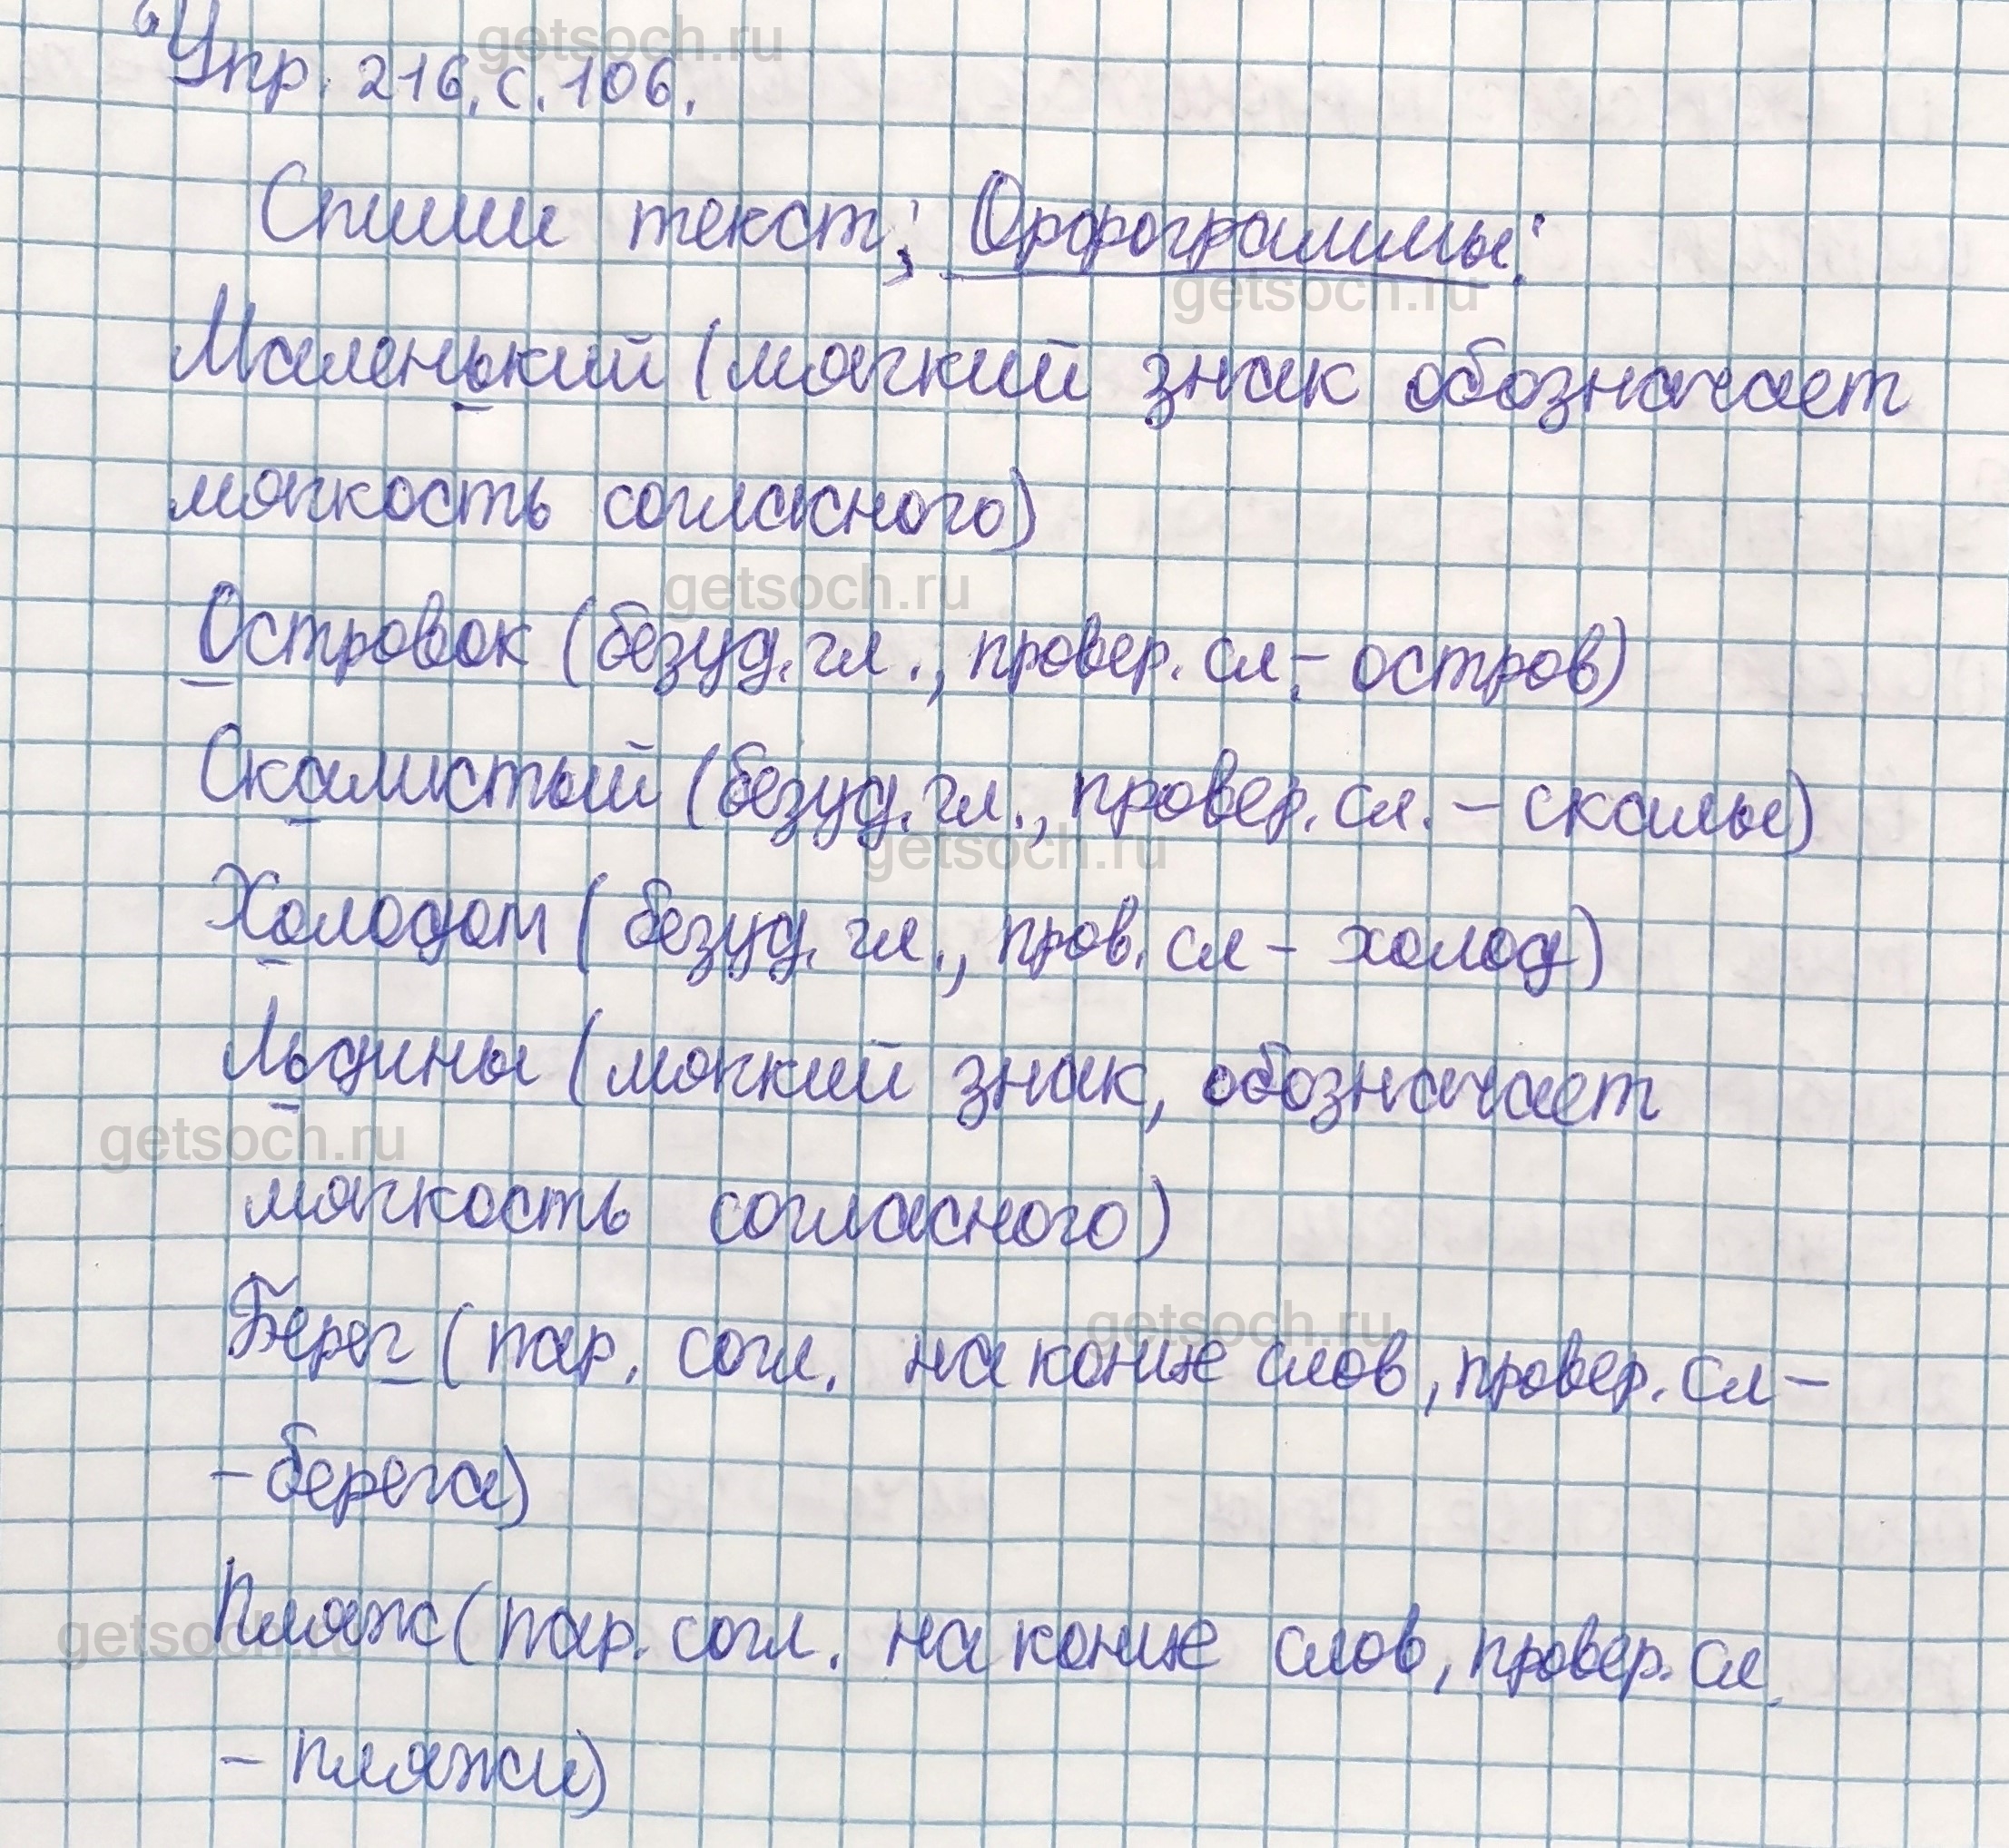 Упр. 216, с. 106.
getsoch.ru
Спиши текст; Орфограммы:
getsoch.ru
Маленький (мягкий знак обозначает
мягкость согласного)
getsoch.ru
Островок (безуд. гл., провер. сл. - остров)
Скалистый (безуд. гл., провер. сл. – скалы)
getsoch.ru
Холодом (безуд. гл., пров. сл - холод)
Льдины (мягкий знак, обозначает
getsoch.ru
мягкость согласного)
getsoch.ru
Берег (пар. согл. на конце слов, провер. сл –
– берега)
Пляж (пар. согл. на конце слов, провер. сл.
getsoch.ru
– пляжи)